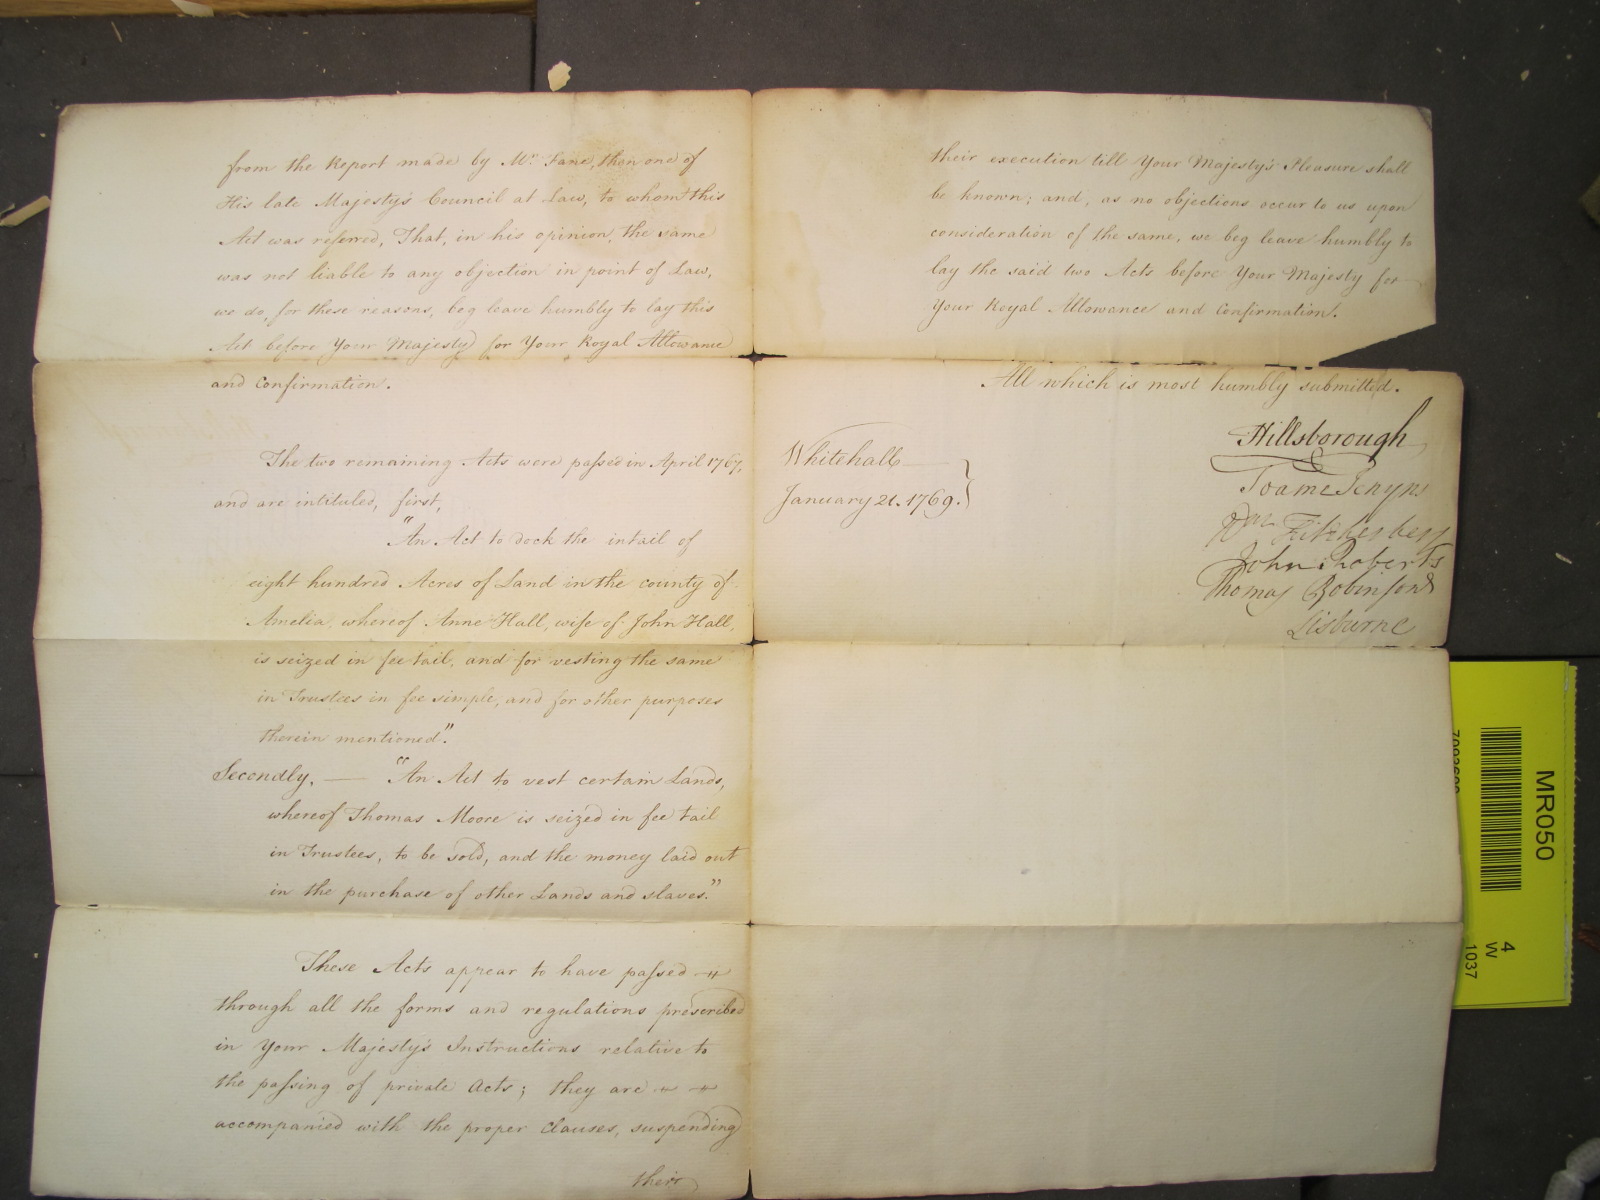 from the Report made by Mr. Fane, then one of
His late Majesty's Council at Law, to whom this
Act was referred, That, in his opinion, the same
was not liable to any objection in point of Law,
we do, for these reasons, beg leave humbly to lay this
Act before Your Majesty for Your Royal Allowance
and Confirmation.
The two remaining Acts were passed in April 1767,
and are intituled, first,
"An Act to dock the intail of
eight hundred Acres of Land in the county of
Amelia, whereof Anne Hall, wife of John Hall,
is seized in fee tail, and for vesting the same
in Trustees in fee simple, and for other purposes
therein mentioned".
Secondly. — "An Act to vest certain Lands,
whereof Thomas Moore is seized in fee tail
in Trustees, to be sold, and the money laid out
in the purchase of other Lands and slaves."
These Acts appear to have passed
through all the forms and regulations prescribed
in Your Majesty's Instructions relative to
the passing of private Acts; they are
accompanied with the proper Clauses, suspending
their
their execution till Your Majesty's Pleasure shall
be known; and, as no objections occur to us upon
consideration of the same, we beg leave humbly to
lay the said two Acts before Your Majesty for
Your Royal Allowance and Confirmation.
All which is most humbly submitted.
Whitehall
January 21. 1769.
Hillsborough
Soame Jenyns
Wm Fitzherbert
John Roberts
Thomas Robinson
Lisburne
MR050
4
W
1037